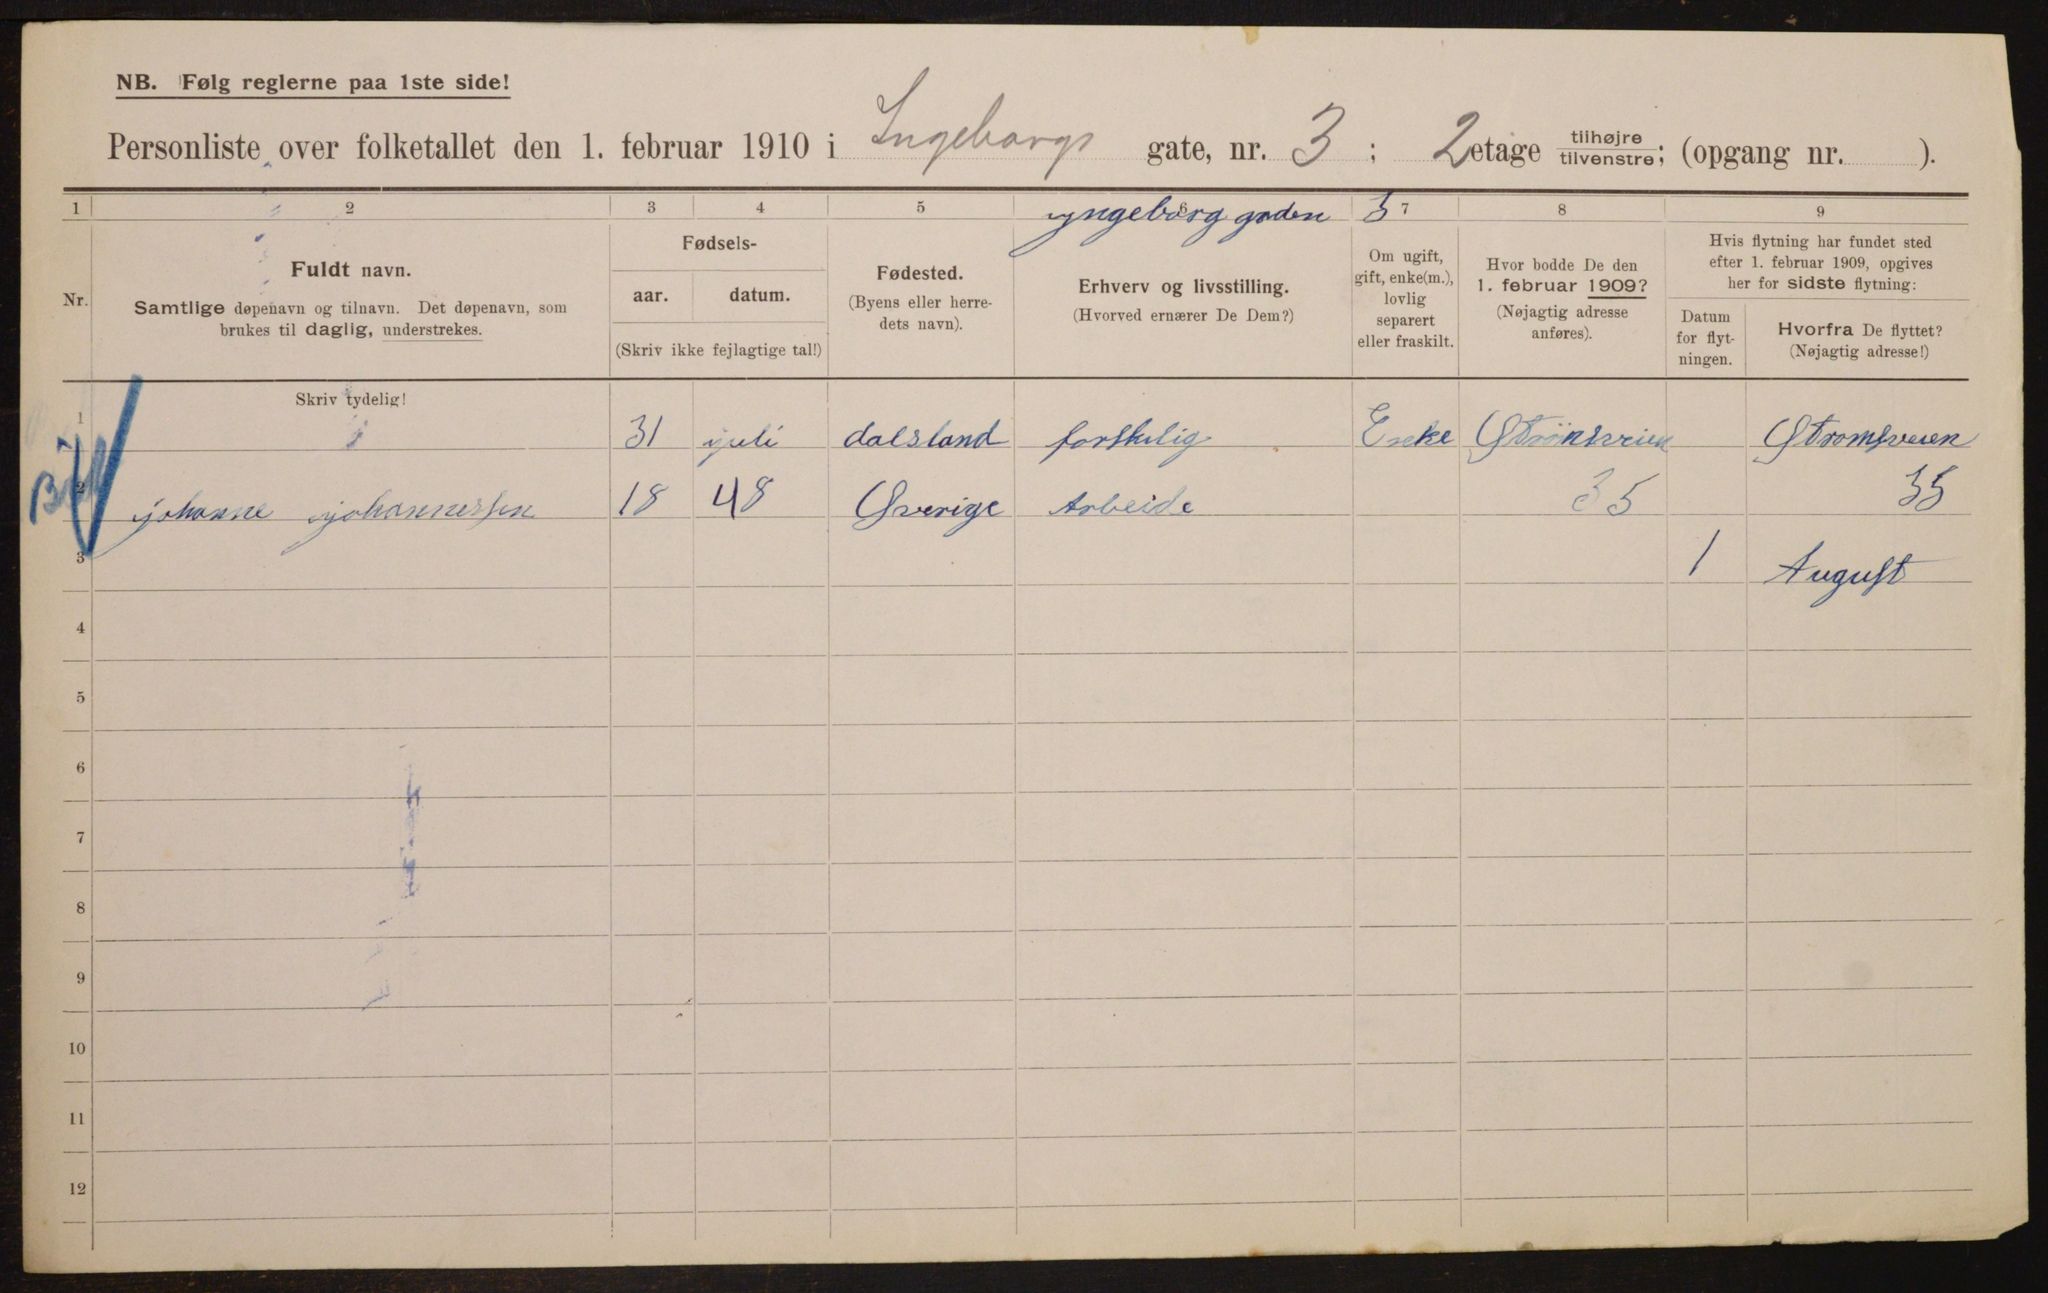 NB. Følg reglerne paa 1ste side!
Personliste over folketallet den 1. februar 1910 i Ingeborgs gate, nr. 3 ; 2 etage tilhøjre tilvenstre; (opgang nr. ).
1 2 3 4 5 6 7 8 9
yngeborg gaden 3
Nr.
Fuldt navn.
Samtlige døpenavn og tilnavn. Det døpenavn, som
brukes til daglig, understrekes.
Fødsels-
aar. datum.
(Skriv ikke fejlagtige tal!)
Fødested.
(Byens eller herre-
dets navn).
Erhverv og livsstilling.
(Hvorved ernærer De Dem?)
Om ugift,
gift, enke(m.),
lovlig
separert
eller fraskilt.
Hvor bodde De den
1. februar 1909?
(Nøjagtig adresse
anføres).
Hvis flytning har fundet sted
efter 1. februar 1909, opgives
her for sidste flytning:
Datum
for flyt-
ningen.
Hvorfra De flyttet?
(Nøjagtig adresse!)
Skriv tydelig!
1 31 juli dalsland forskelig Enke Strönsveien Stromsveien
2 johanne johannessen 18 48 Sverige Arbeide 35 35
3 1 August
4
5
6
7
8
9
10
11
12